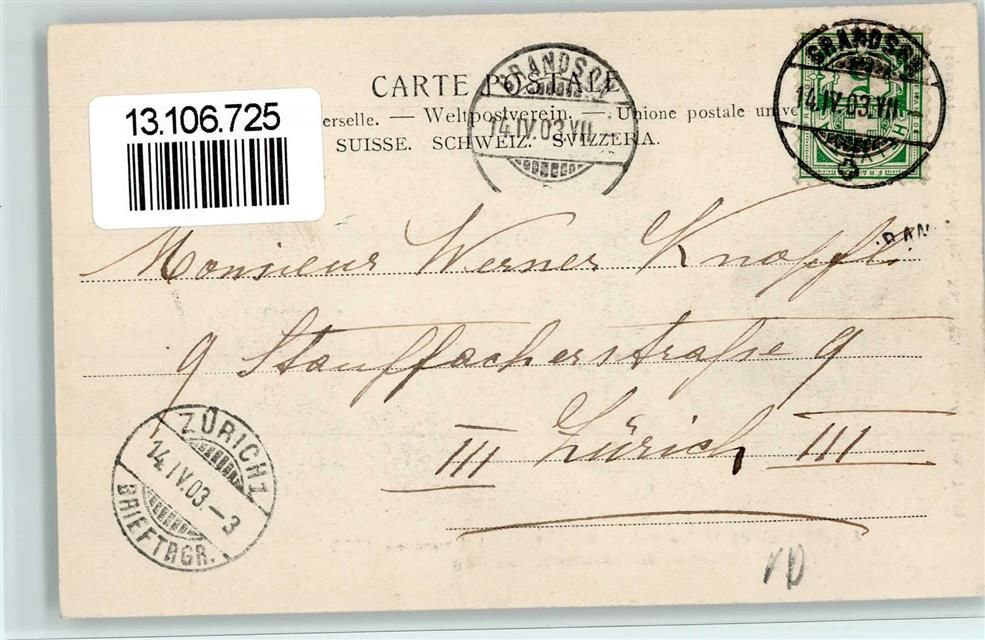 CARTE POSTALE
13.106.725
erselle. — Weltpostverein. — Unione postale unive
SUISSE. SCHWEIZ. SVIZZERA.
GRANDSON
14.IV.03.VII
GRANDSON
14.IV.03.VII
Monsieur Werner Knopfli
9 Stauffacherstraße 9
III Zürich III
ZÜRICH 1
14.IV.03.–3
BRIEFTRGR.